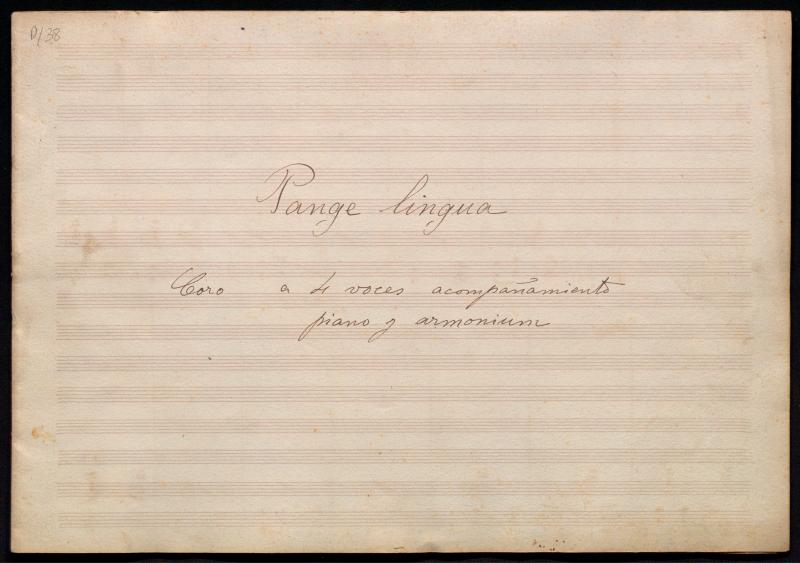 D/38
Pange lingua
Coro a 4 voces acompañamiento
piano y armonium